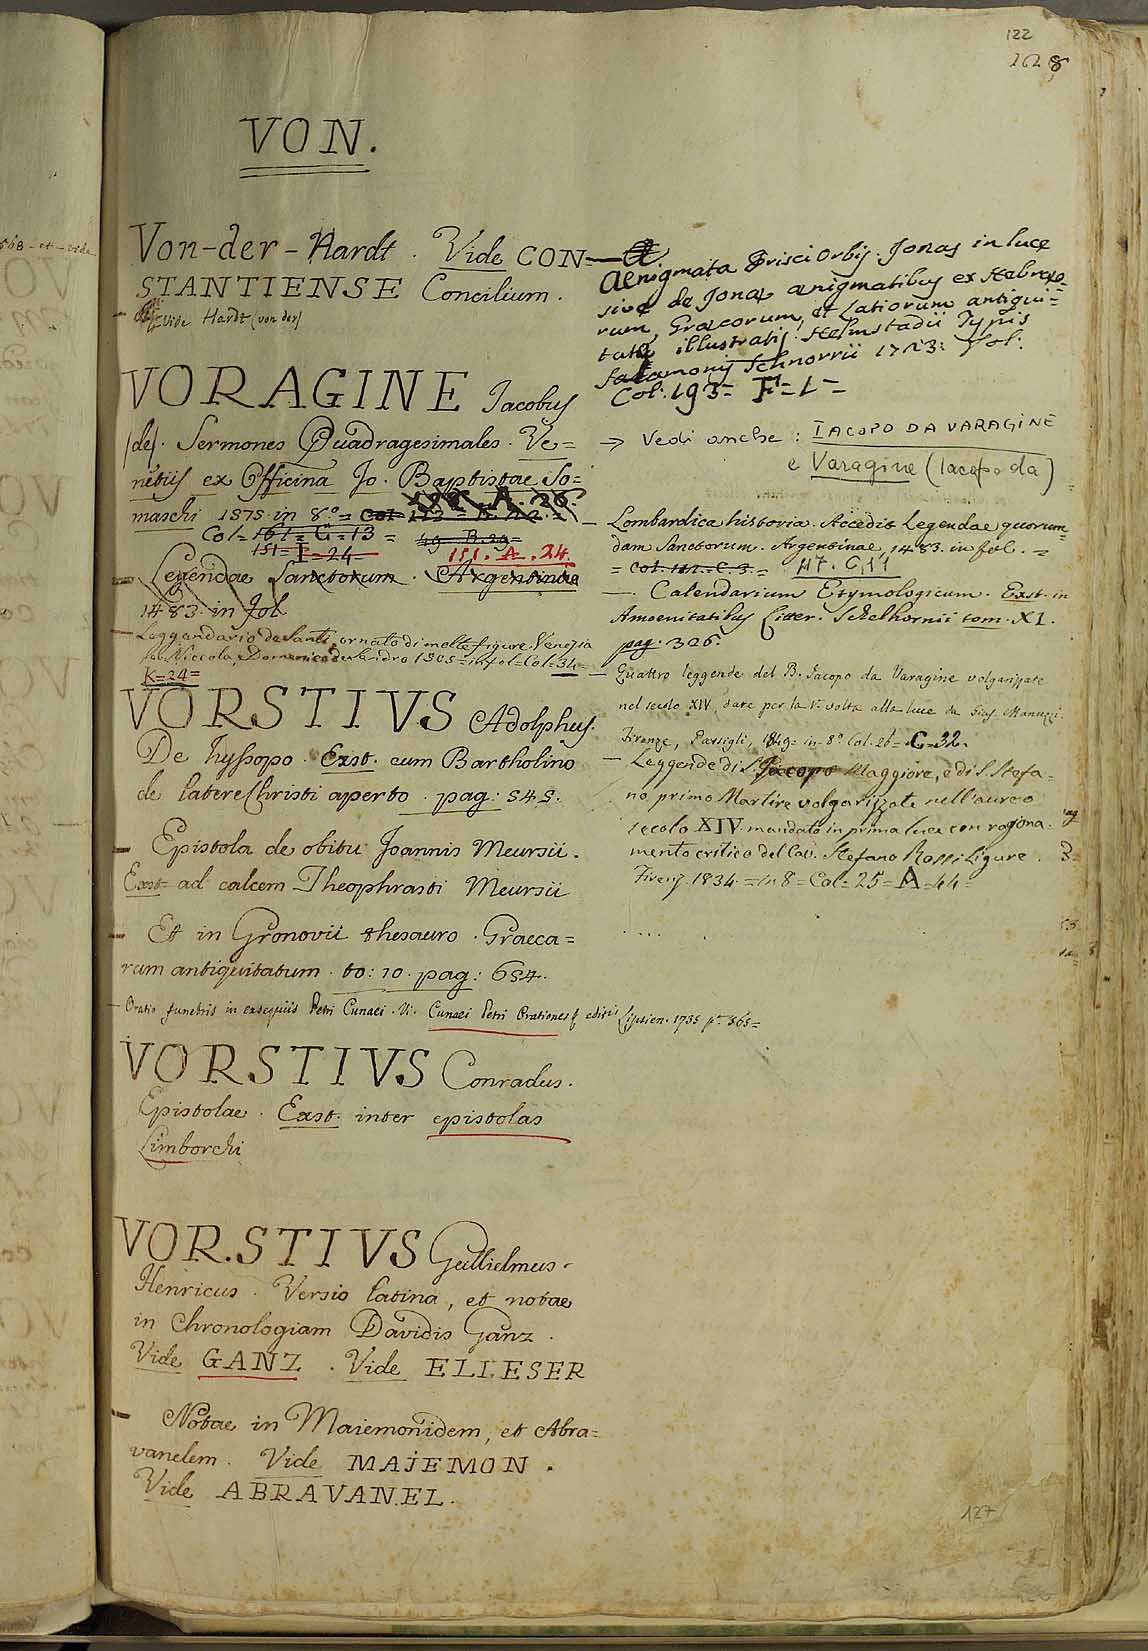 122
VON.
Von-der-Hardt. Vide CON=
STANTIENSE Concilium.
Vide Hardt (von der)
VORAGINE Jacobus
(de). Sermones Quadragesimales. Ve=
netiis ex Officina Jo. Baptistae So=
maschi 1575 in 8.° =
Col= 161= G= 13 =
151= I= 24= 49- B. 29=
151. A. 24.
Legendae Sanctorum. Argentinae
1483. in fol
Leggendario de Santi ornato di molte figure Venezia
Niccolo, Domenico 1505= in fol= Col= 34=
K=24=
VORSTIVS Adolphus.
De hyssopo. Exst. cum Bartholino
de latere Christi aperto. pag: 545.
Epistola de obitu Joannis Meursii.
Exst ad calcem Theophrasti Meursii
Et in Gronovii thesauro. Graeca=
rum antiquitatum. to: 10. pag: 654.
Oratio funebris in exsequiis Petri Cunaei. Vi. Cunaei Petri Orationes editis Lipsien. 1735 p. 365=
VORSTIVS Conradus.
Epistolae. Exst. inter epistolas
Limborchi
VORSTIVS Gullielmus-
Henricus. Versio latina, et notae
in Chronologiam Davidis Ganz.
Vide GANZ. Vide ELIESER
Notae in Maiemonidem, et Abra=
vanelem. Vide MAIEMON.
Vide ABRAVANEL.
Aenigmata Prisci Orbis. Jonas in luce
sive de Jonas aenigmatibus ex Hebreo=
rum, Graecorum, et Latiorum antiqui=
tate illustratis. Helmstadii Typis
Salamonis Schnorrii 1723: fol:
Col: 193= F=1=
→ Vedi anche: IACOPO DA VARAGINE
e Varagine (Iacopo da)
Lombardica historia. Accedit Legendae quorun=
dam Sanctorum. Argentinae, 1483. in fol. =
= Col. C. 3. = 47. C. 11
Calendarium Etymologicum. Exst. in
Amoenitatibus Litter. Schelhornii tom. XI.
pag: 326.
Quattro leggende del B. Jacopo da Varagine volgarizzate
nel secolo XIV, date per la 1ª volta alla luce da Gius. Manuzzi.
Firenze, Passigli, 1849= in-8° Col. 26= C=32.
Leggende di S. Jacopo Maggiore, e di S. Stefa-
no primo Martire volgarizzate nell'aureo
secolo XIV. mandato in prima luce con ragiona-
mento critico del Cav. Stefano Rossi Ligure.
Firenz. 1834. =in 8= Col= 25= A=44=
127